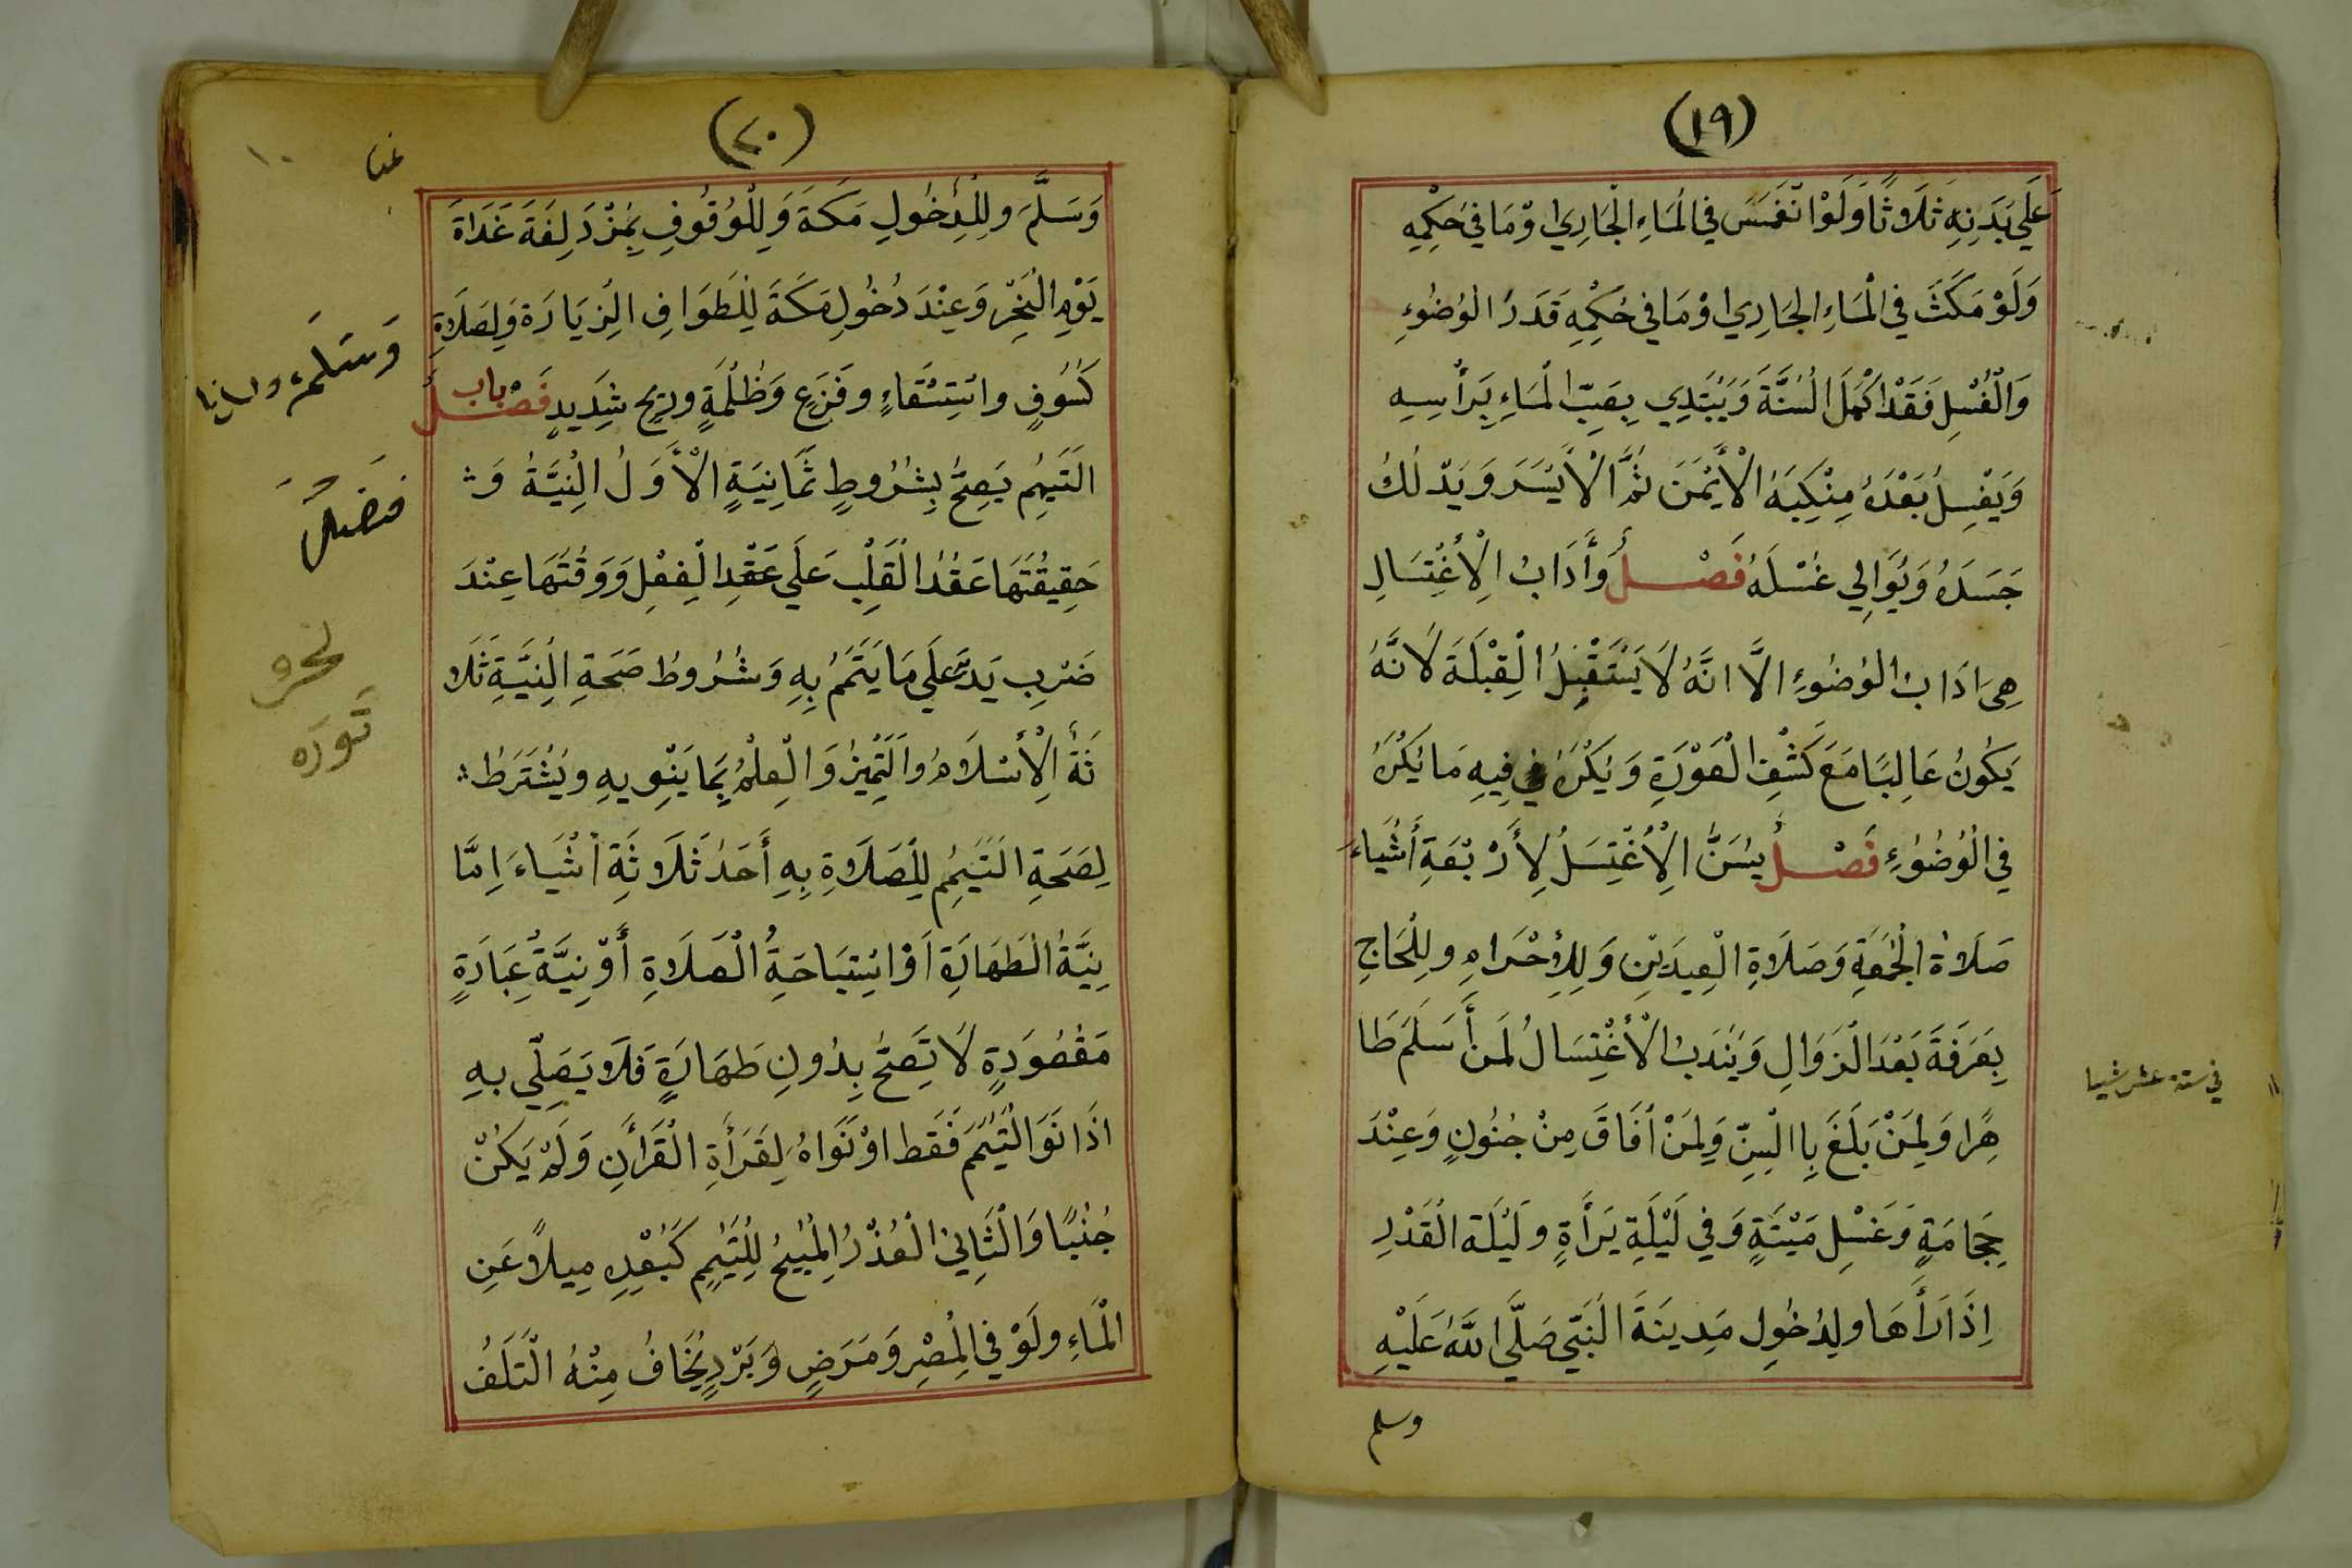 (١٩)
عَلَي بَدَنِهِ ثَلَاثًا وَلَوْ انْغَمَسَ فِي الْمَاءِ الْجَارِي اوْ مَا فِي حُكْمِهِ
وَلَوْ مَكَثَ فِي الْمَاءِ الجَارِي اوْ مَا فِي حُكْمِهِ قَدَرَ الْوُضُوءِ
وَالْغُسْلِ فَقَدْ اكْمَلَ الْسُنَّةَ وَيَبْتَدِي بِصَبِّ الْمَاءِ بِرَأْسِهِ
وَيَغْسِلُ بَعْدَهُ مِنْكِبَهُ الْأَيْمَنَ ثُمَّ الْأَيْسَرَ وَيَدْلُكُ
جَسَدَهُ وَيُوَالِي غَسْلَهُ فَصْلٌ وَأَدَابُ الْأغْتِسَالِ
هِيَ ادَابُ الْوُضُوءِ الَّا انَّهُ لَا يَسْتَقْبِلُ الْقِبْلَةَ لَانَّهُ
يَكُونُ غَالِبًا مَعَ كَشْفِ الْعَوْرَةِ وَيَكْرَهُ فِيهِ مَا يُكْرَهُ
فِي الْوُضُوءِ فَصْلٌ يسُنَّ الْاغْتِسَلُ لِأَرْبَعَةِ أَشْيَاءَ
صَلَاةَ الجُمُعَةِ وَصَلَاةِ الْعِيدَيْنِ وَلِلِأحْرَامِ ولِلْحَاجِ
بِعَرَفَةَ بَعْدَ الْزَوَالِ وَيَنْدَبُ الْأغْتِسَالُ لَمَنْ أَسَلَمَ طَا
هِرًا وَلِمَنْ بَلَغَ بِاالْسِنِّ وَلِمَنْ أفَاقَ مِنْ جُنُونٍ وَعِنْدَ
حِجَامَةٍ وَغَسْلِ مَيْتَةٍ وَفِي لَيْلَةِ بَرَأَةٍ ولَيْلَةِ الْقَدْرِ
اِذَا رَأَهَا ولِدُخُولِ مَدِينَةَ الْنَبِّي صَلَّي اللَّهُ عَلَيْهِ
وسلم
في ستة عشر شيا
(٢٠)
وَسَلَّمَ ولِلْدِخُولِ مَكَةَ وَلِلْوُقُوفِ بِمُزْدَلِفَةَ غَدَاةَ
يَوْمِ الْنَحْرِ وَعِنْدَ دُخُولِ مَكَةَ لِلْطَوَافِ الْزِيَارَةِ وَلِصَلَاةِ
كَسُوفٍ واسْتِسْقَاءٍ وفَزَعٍ وَظُلْمَةٍ ورِيحٍ شَدِيدٍ فَصْلٌ باب
الْتَيَمُمِ يَصِحُّ بِشُرُوطٍ ثَمَانِيَةٍ الْأَوَلُ الْنِيَّةُ وَ
حَقِيقُتَهَا عَقْدُ الْقَلْبِ عَلَي عَقْدِ الْفِعْلِ وَوَقْتُهَا عِنْدَ
ضَرْبِ يَدِهِ عَلَي مَا يَتَمَمُ بِهِ وَشُرُوطُ صَحَةِ الْنِيَّةِ ثَلَا
ثَةُ الْأسْلَامُ والَتَمِيْزُ وَالْعِلْمُ بِمَا يَنْوِيهِ ويُشْتَرَطُ
لِصَحَةِ الْتَيَمُمِ لِلْصَلَاةِ بِهِ أَحَدُ ثَلَاثَةِ اشْيَاءَ اِمَّا
نِيَّةُ الْطَهَارَةِ اَوْ اسْتِبَاحَةُ الْصَلَاةِ أَوْ نِيَّةُ عِبَادَةٍ
مَقْصُودَةٍ لَا تَصِحُّ بِدُونِ طَهَارَةٍ فَلَا يَصَلِّي بِهِ
اذَا نَوَا الْتَيَمُمَ فَقَط اوْ نَوَاهُ لِقَرَأَةِ الْقَرَأَنِ وَلَمْ يَكُنْ
جُنُبًا وَالْثَانِي الْعُذْرُ الْمُبِيْحُ لِلْتَيَمُمِ كَبُعْدِهِ مِيلًا عَنِ
الْمَاءِ ولَوْ فِي الْمِصْرِ وَمَرَضٍ وَبَرْدٍ يُخَافُ مِنْهُ الْتَلَفُ
١٠
وَسَلَمَ
فَصْلٌ
نحو